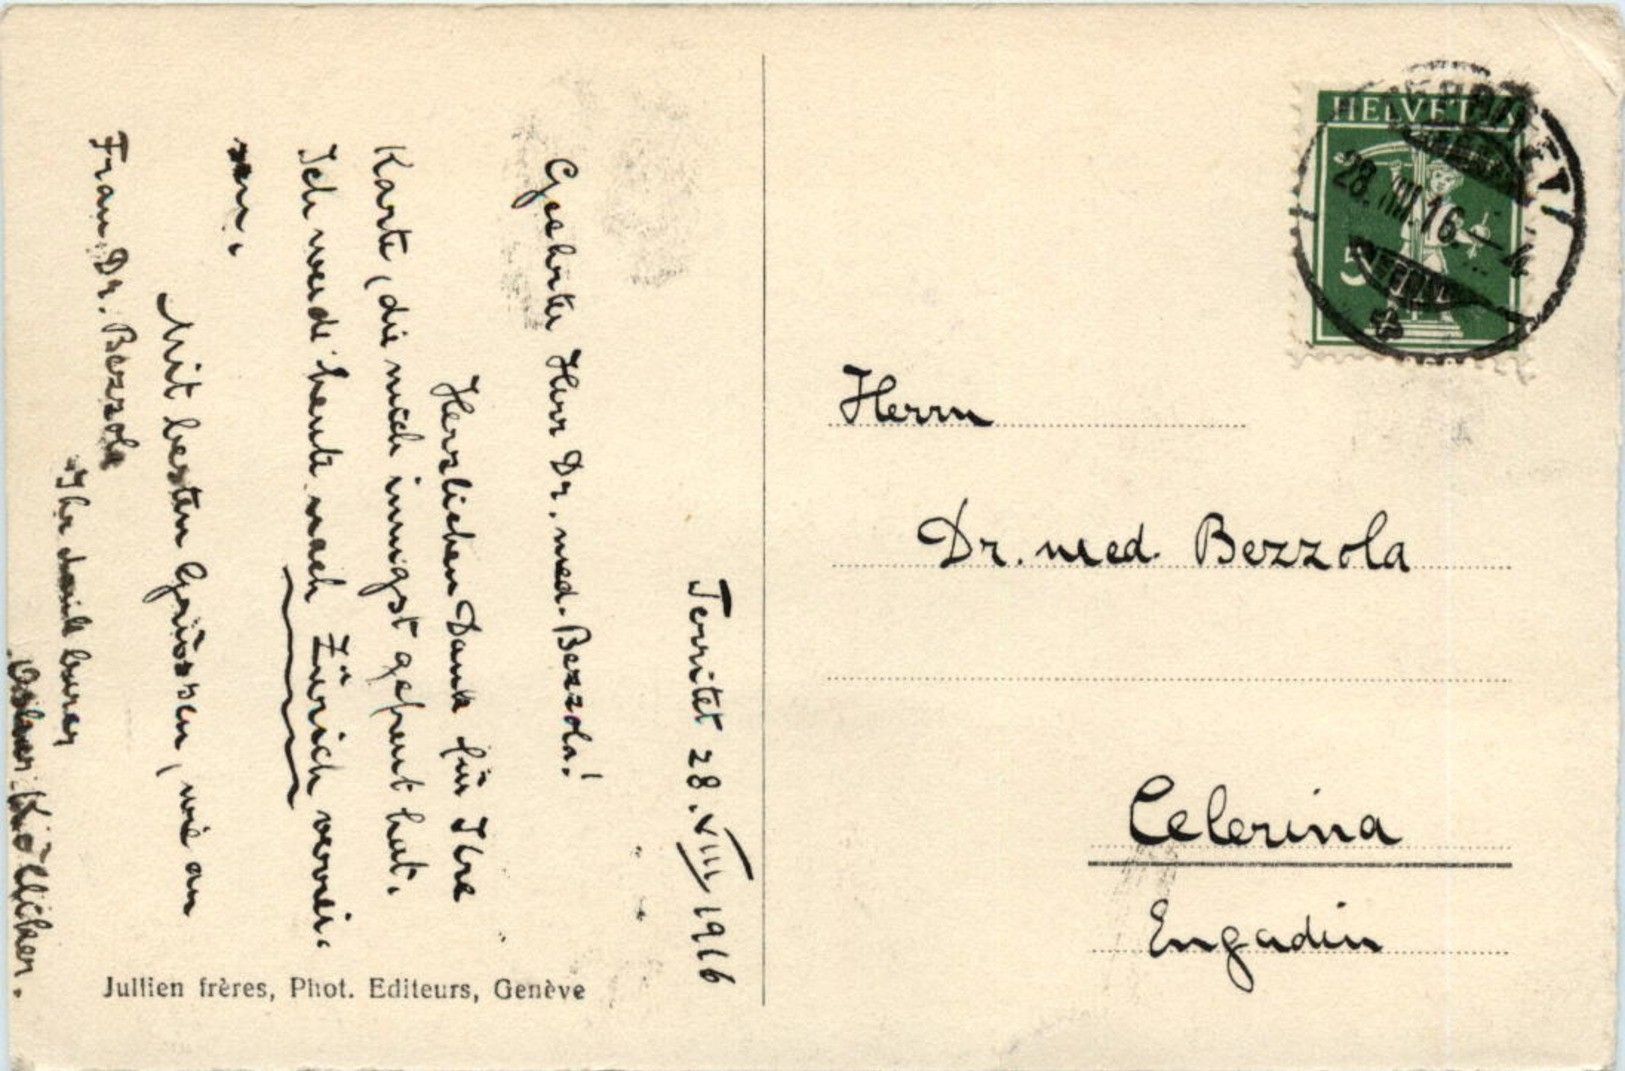 Territet 28. VIII 1916
Geehrter Herr Dr. med. Bezzola!
Herzlichen Dank für Ihre
Karte, die mich innigst gefreut hat.
Ich werde heute nach Zürich verrei-
sen.
Mit besten Grüssen, wie an
Frau Dr. Bezzola
Ihr dankbarer
Kölliker.
Jullien frères, Phot. Editeurs, Genève
HELVETIA
5
TERRITET
28. VIII. 16. – 4
Herrn
Dr. med. Bezzola
Celerina
Engadin